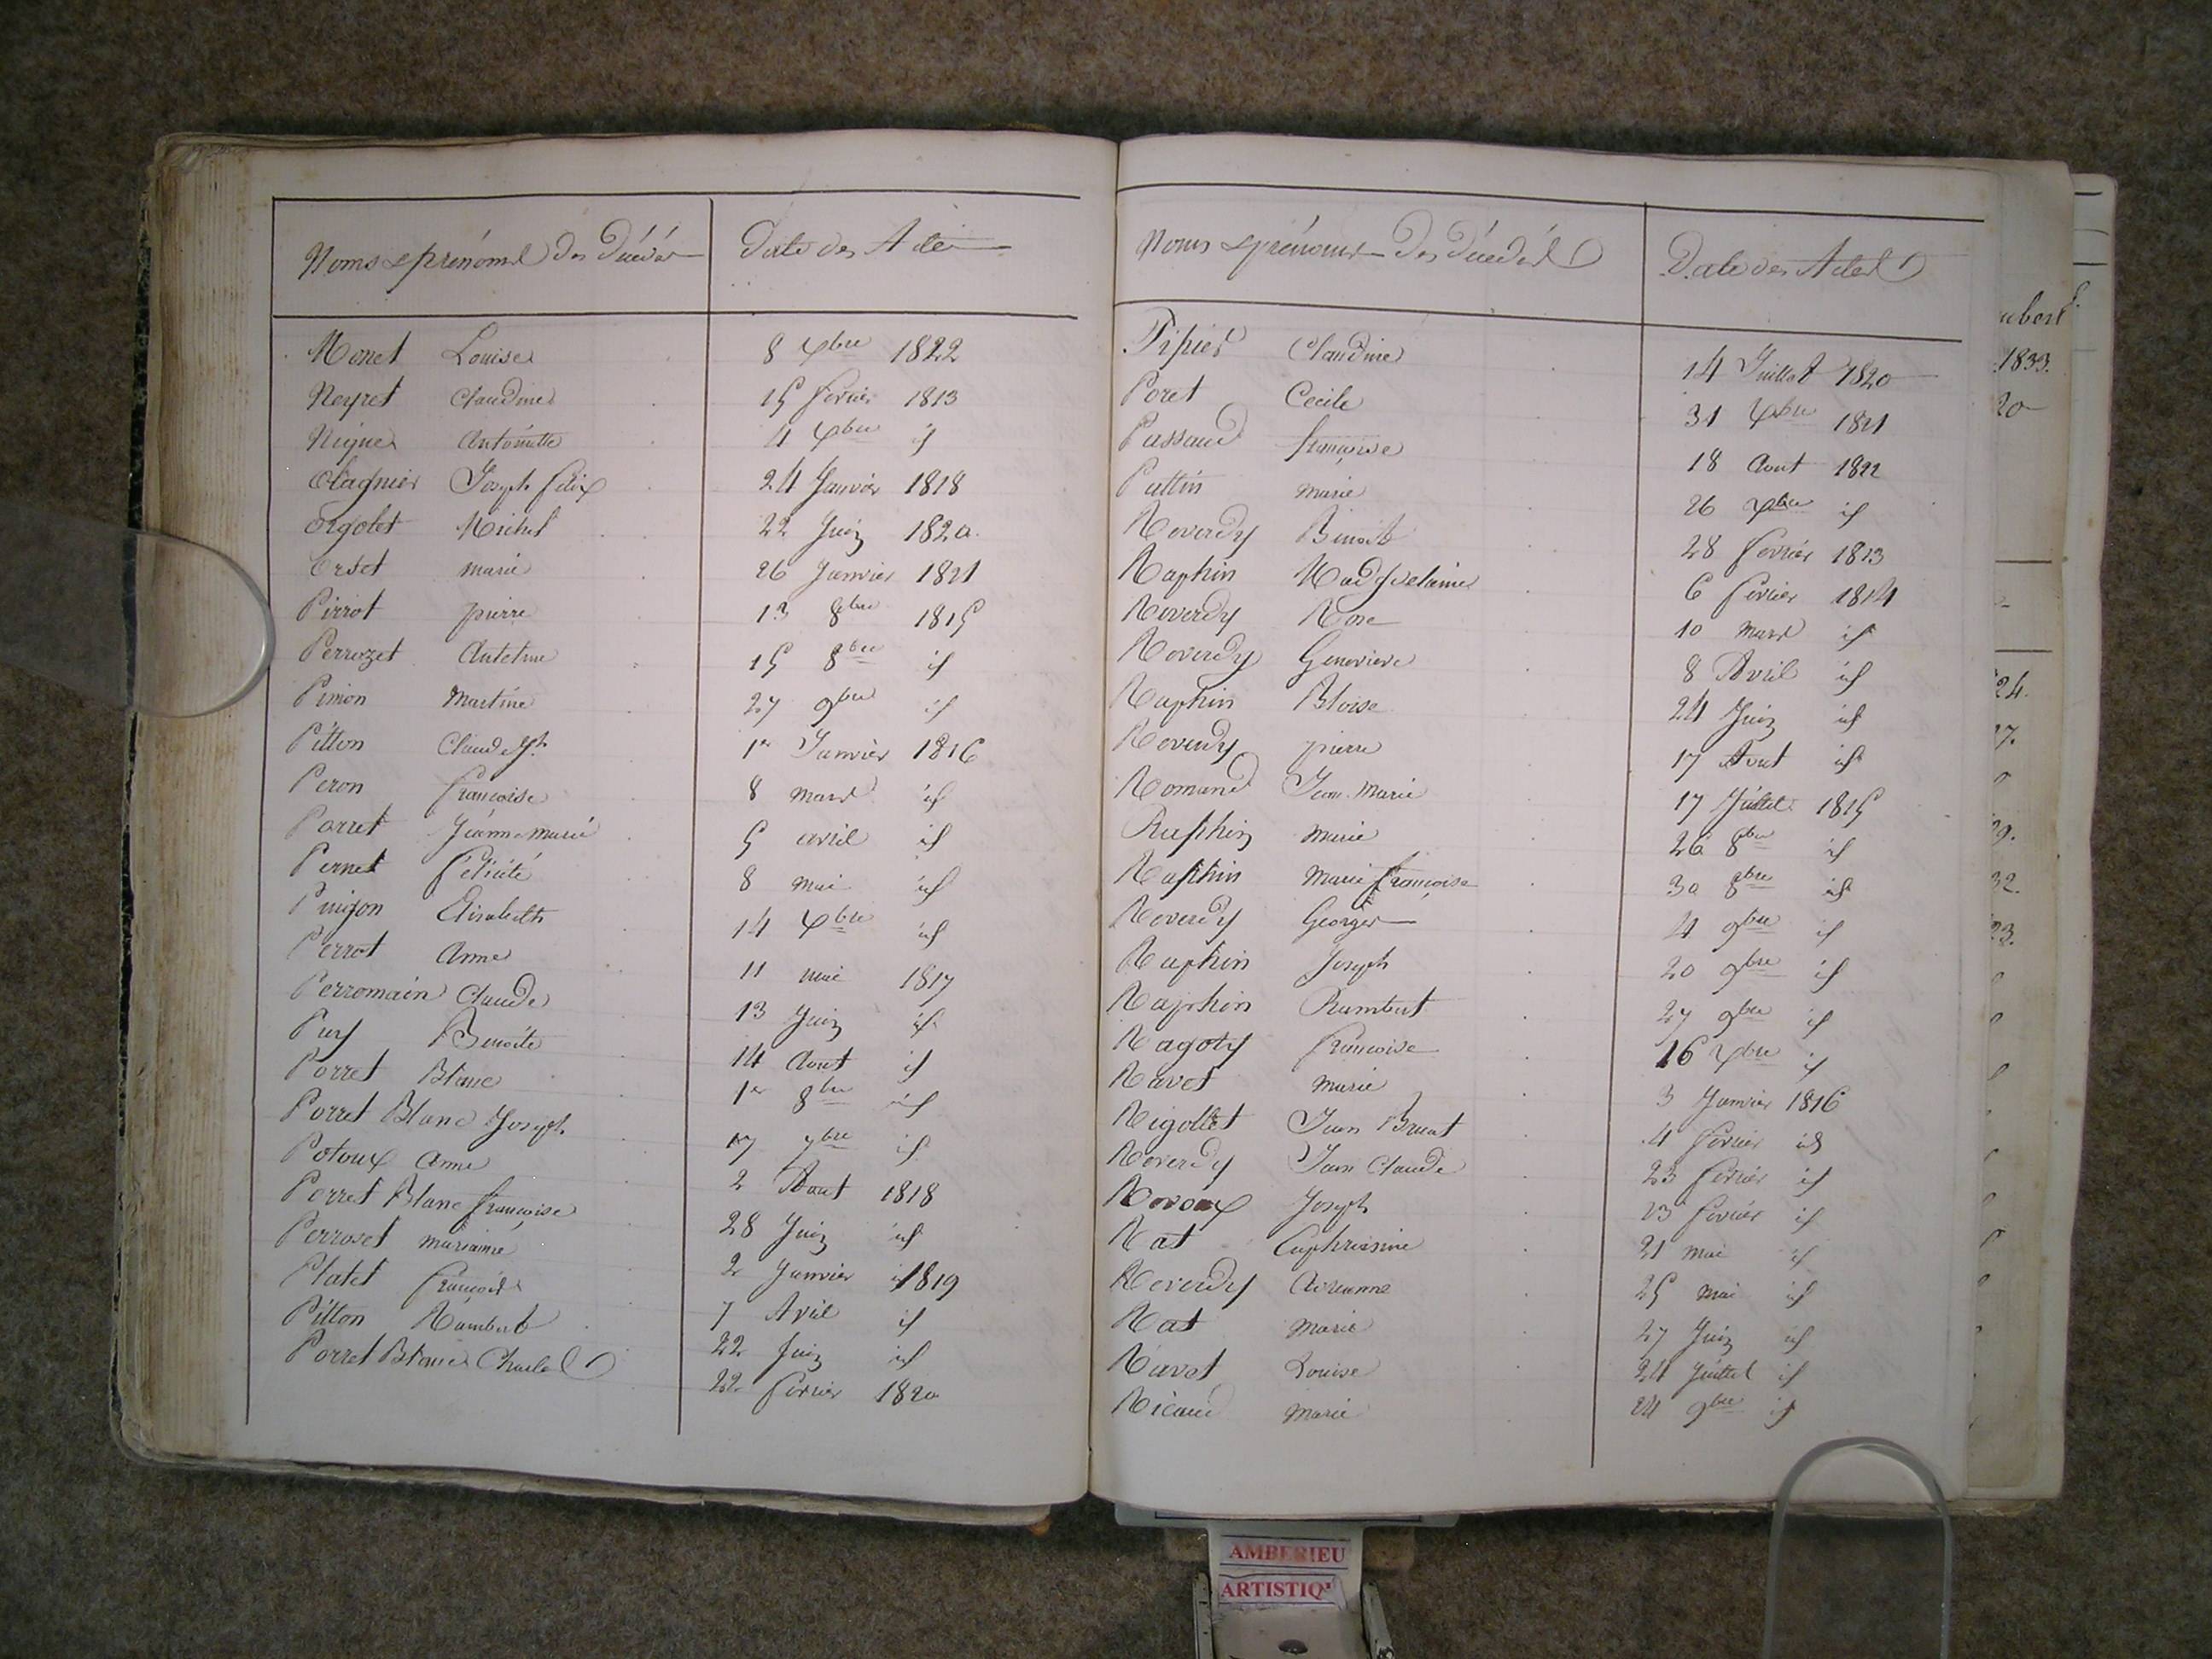 Noms et prénoms des Décédés Date des Actes
Monet Louise 8 Xbre 1822
Neyret Claudine 15 fevrier 1813
Nigues Antoinette 4 Xbre id
Olagnier Joseph felix 24 Janvier 1818
Orgolet Michel 22 Juin 1820
Orset marie 26 Janvier 1821
Pirrot pierre 13 8bre 1815
Perrozet Antelme 15 8bre id
Pinion Martine 27 9bre id
Pitton Claude Jh 1er Janvier 1816
Peron françoise 8 mars id
Porret Jeanne marie 5 avril id
Pernet félicité 8 mai id
Elisabeth 14 Xbre id
Perrot Anne 11 mai 1817
Perromain Claude 13 Juin id
Benoite 14 Aout id
Porret Blanc 1er 8bre id
Porret Blanc Joseph 17 7bre id
Potoux Anne 2 Aout 1818
Porret Blanc françoise 28 Juin id
Perroset marianne 2 Janvier 1819
Platet françois 7 Avril id
Pitton Rambert 22 Juin id
Porret Blanc Charles 22 fevrier 1820
Noms et prénoms des Décédés Date des Actes
Claudine 14 Juillet 1820
Poret Cecile 31 Xbre 1821
Passaud françoise 18 Aout 1822
Puttin marie 26 Xbre id
Reverdy Benoit 28 fevrier 1813
Raphin Magdelaine 6 fevrier 1814
Reverdy Rose 10 Mars id
Reverdy Genevieve 8 Avril id
Raphin Bloise 24 Juin id
Reverdy pierre 17 Aout id
Romand Jean Marie 17 Juillet 1815
Raphin Marie 26 8bre id
Raphin Marie françoise 30 8bre id
Reverdy George 4 9bre id
Raphin Joseph 20 9bre id
Raphin Rambert 27 9bre id
Ragoty françoise 16 Xbre id
Ravet Marie 3 Janvier 1816
Rigottet Jean Benoit 4 fevrier id
Reverdy Jean Claude 23 fevrier id
Joseph 23 fevrier id
Rat Euphrasine 21 mai id
Reverdy 25 mai id
Rat Marie 27 Juin id
Ravet Louise 24 Juillet id
Ricaud Marie 24 9bre id
1833.
20
24.
AMBERIEU
ARTISTIQ